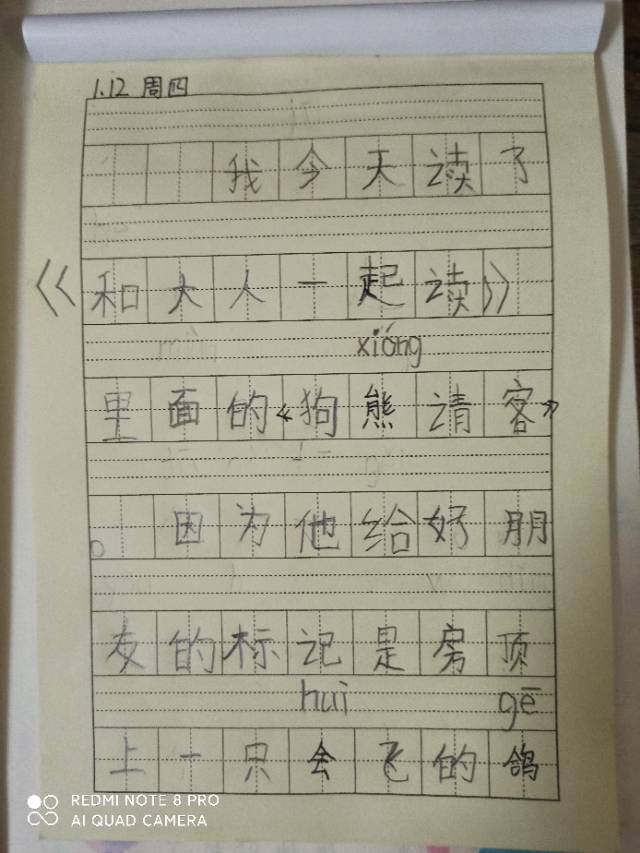 1.12 周四
我今天读了
《和大人一起读》
xióng
里面的《狗熊请客》
。因为他给好朋
友的标记是房顶
huì gē
上一只会飞的鸽
REDMI NOTE 8 PRO
AI QUAD CAMERA